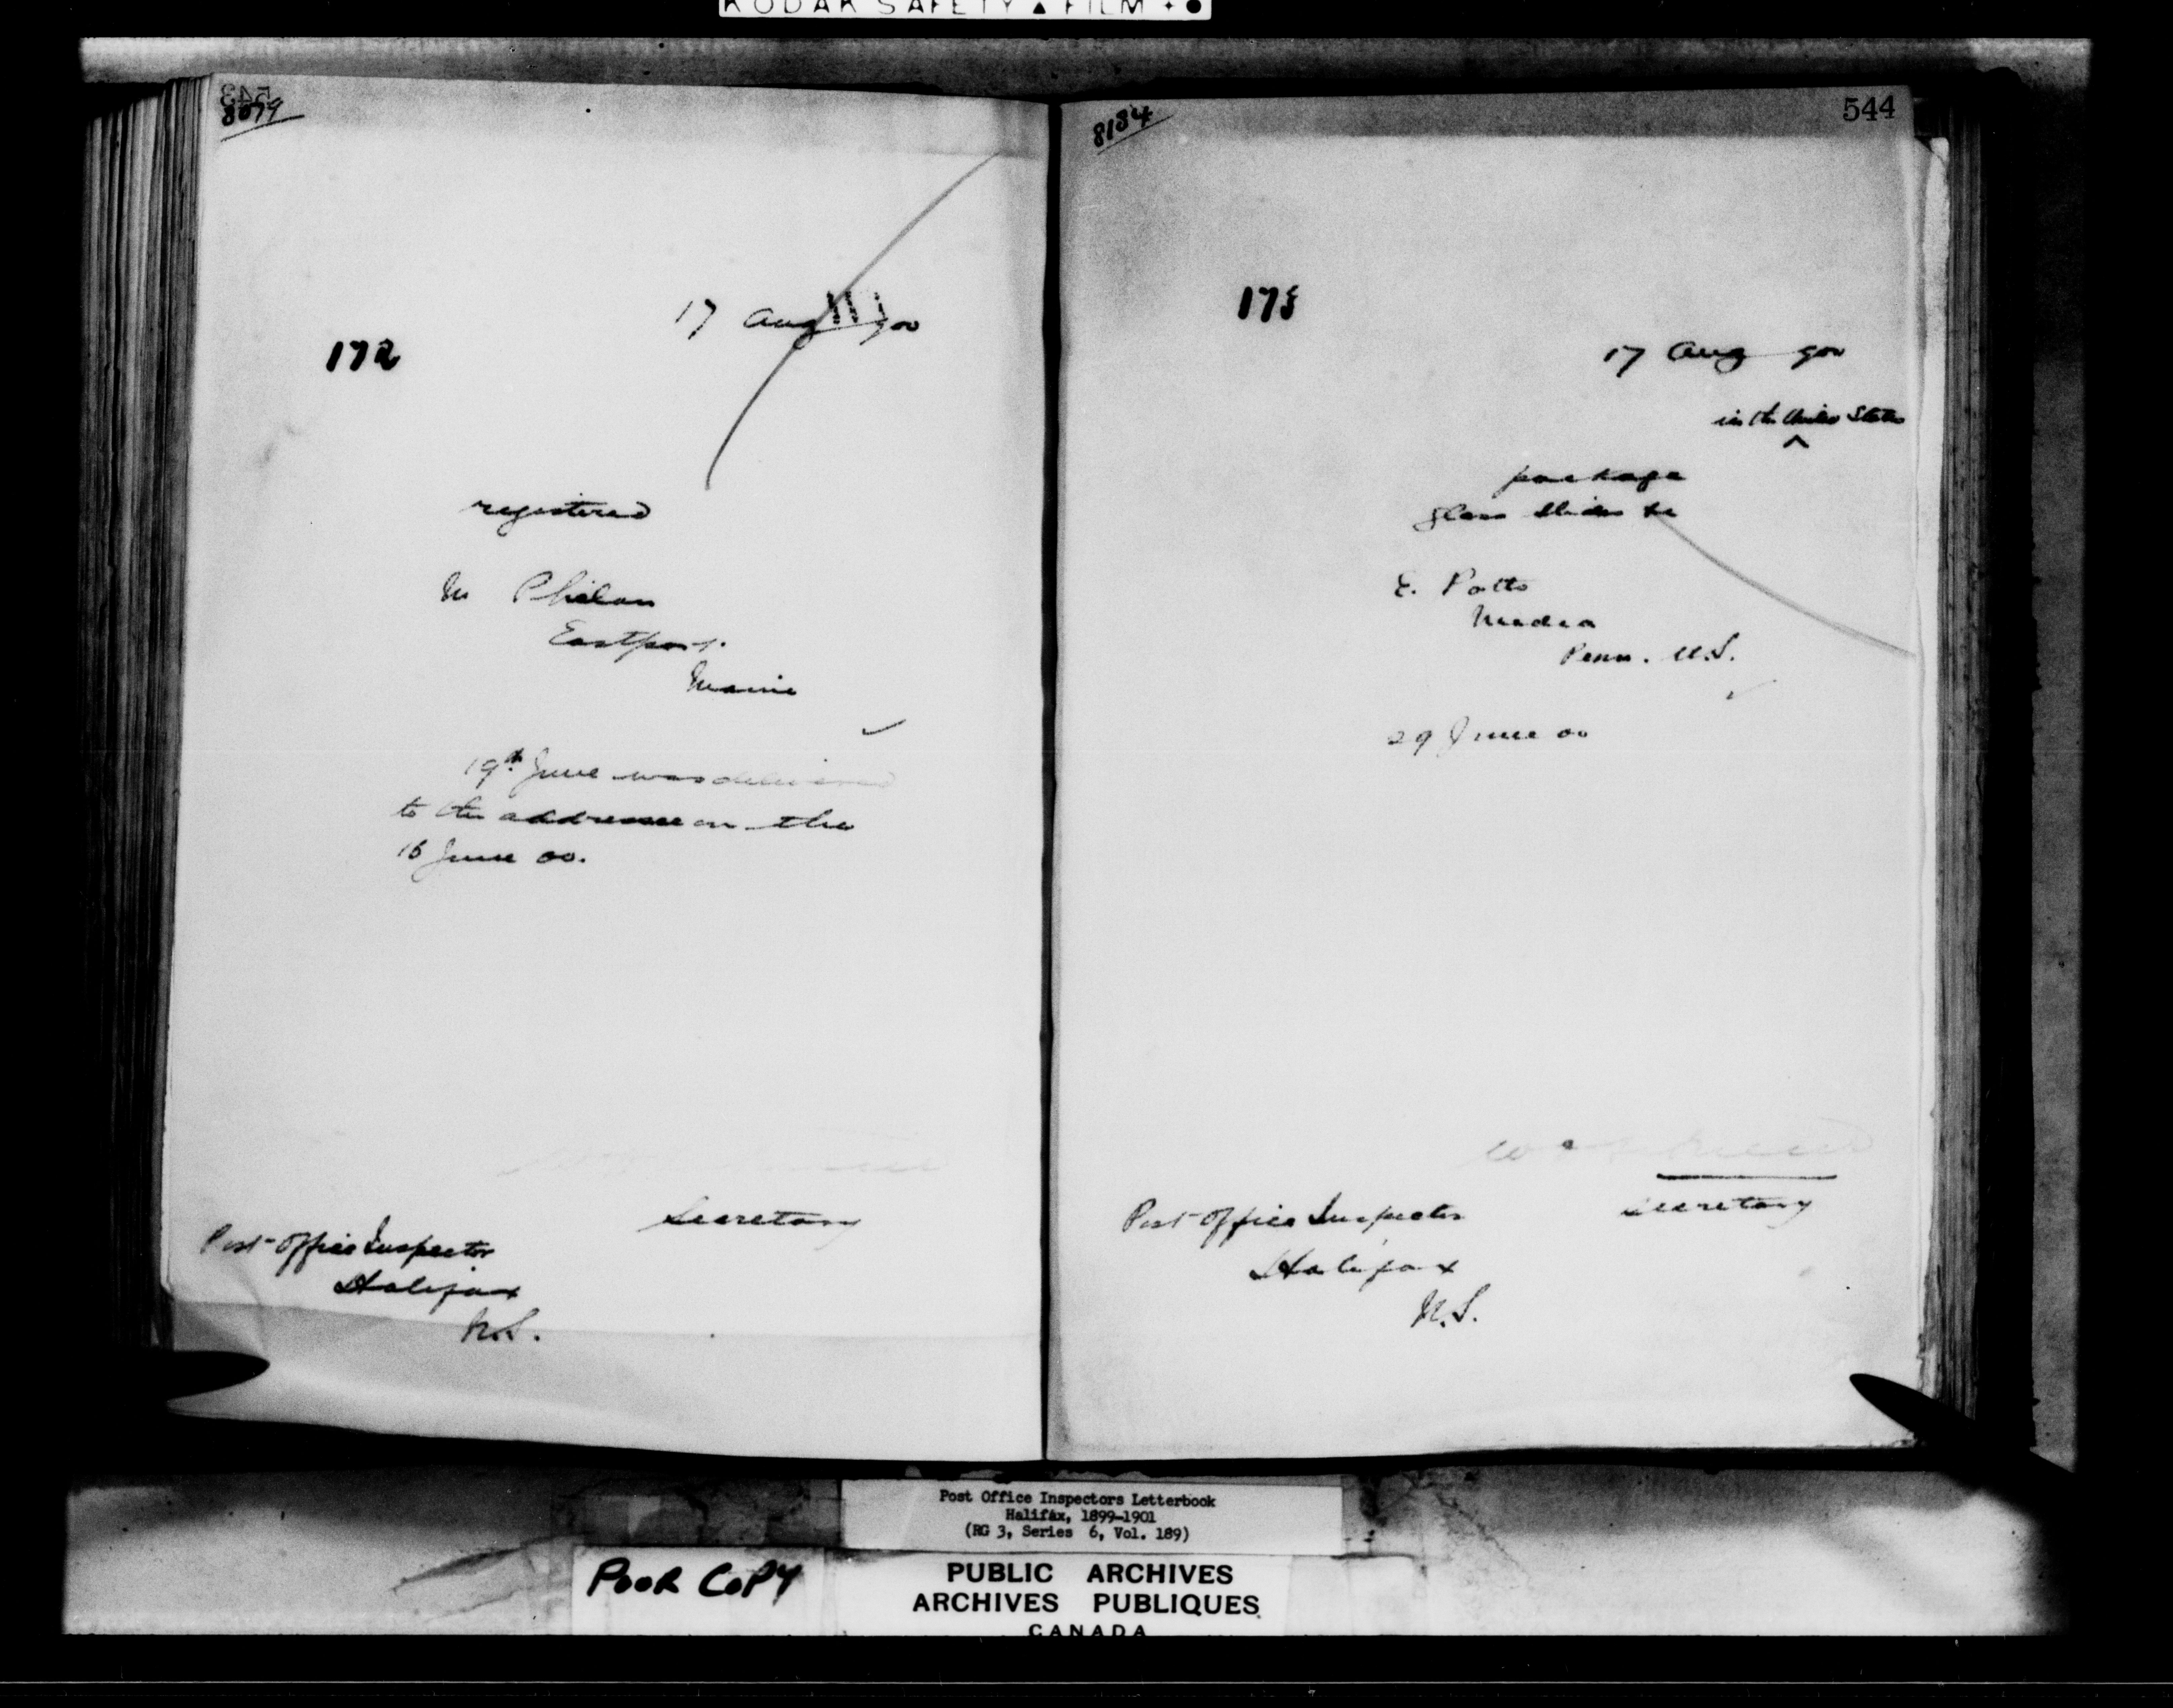 KODAK SAFETY ▲ FILM
543
8079
17 Aug 900
172
registered
M Phelan
Eastport
Maine
19th June was delivered
to the addressee on the
16 June 00.
Secretary
Post Office Inspector
Halifax
N.S.
8134
544
173
17 Aug 900
in the United States
^
package
glass slides &c
E. Potts
Media
Penn. U.S.
29 June 00
Secretary
Post Office Inspector
Halifax
N.S.
Post Office Inspectors Letterbook
Halifax, 1899-1901
(RG 3, Series 6, Vol. 189)
POOR COPY
PUBLIC ARCHIVES
ARCHIVES PUBLIQUES
CANADA